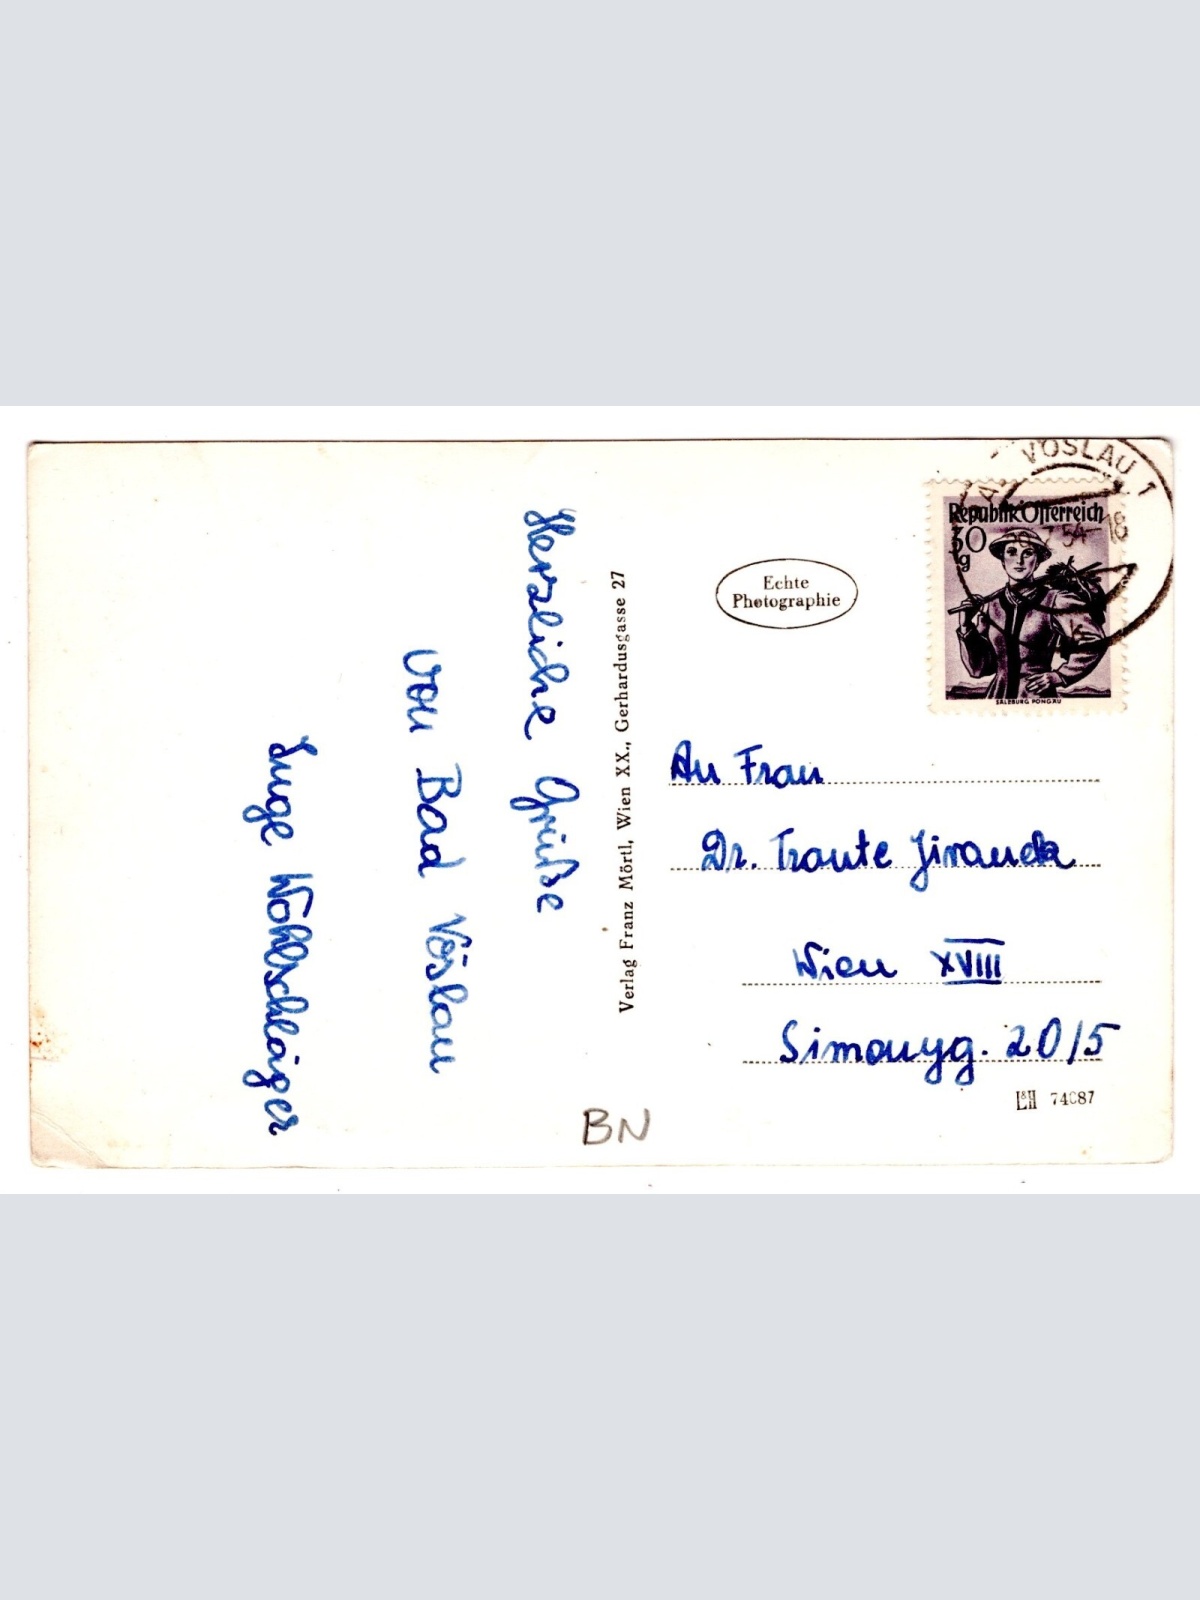 Herzliche Grüße
von Bad Vöslau
Inge Wohlschläger
Verlag Franz Mörtl, Wien XX., Gerhardusgasse 27
Echte
Photographie
VÖSLAU 1
54-18
Republik Österreich
30
g
SALZBURG PONGAU
An Frau
Dr. Traute
Wien XVIII
Simonyg. 20/5
L&H 74087
BN